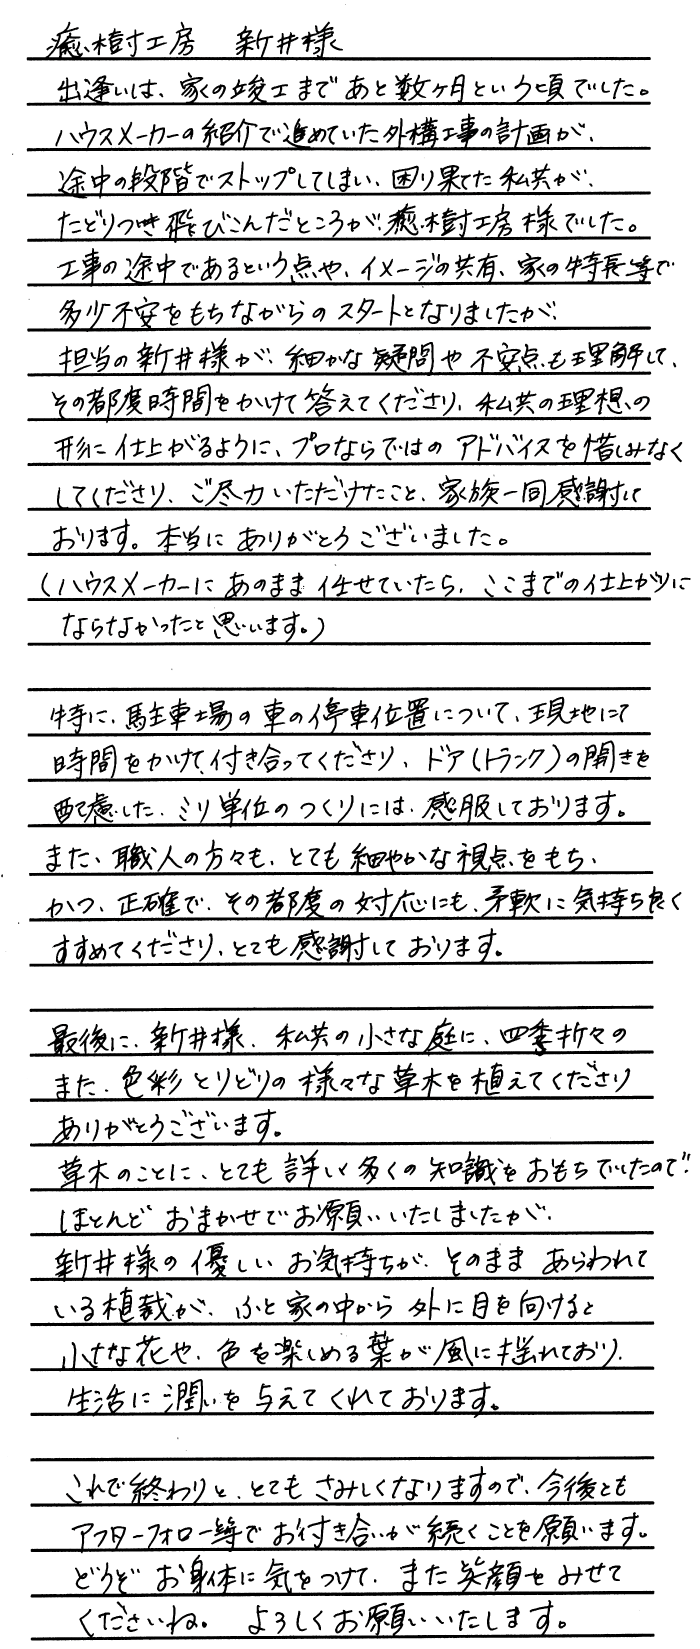 癒樹工房　新井様
出逢いは、家の竣工まであと数ヶ月という頃でした。
ハウスメーカーの紹介で進めていた外構工事の計画が、
途中の段階でストップしてしまい、困り果てた私共が、
たどりつき飛びこんだところが、癒樹工房様でした。
工事の途中であるという点や、イメージの共有、家の特長等で
多少不安をもちながらのスタートとなりましたが、
担当の新井様が、細かな疑問や不安点も理解して、
その都度時間をかけて答えてくださり、私共の理想の
形に仕上がるように、プロならではのアドバイスを惜しみなく
してくださり、ご尽力いただけたこと、家族一同感謝して
おります。本当にありがとうございました。
（ハウスメーカーにあのまま任せていたら、ここまでの仕上がりに
ならなかったと思います。）
特に、駐車場の車の停車位置について、現地にて
時間をかけて、付き合ってくださり、ドア（トランク）の開きを
配慮した、ミリ単位のつくりには、感服しております。
また、職人の方々も、とても細やかな視点をもち、
かつ、正確で、その都度の対応にも、柔軟に気持ち良く
すすめてくださり、とても感謝しております。
最後に、新井様、私共の小さな庭に、四季折々の
また、色彩とりどりの様々な草木を植えてくださり
ありがとうございます。
草木のことに、とても詳しく多くの知識をおもちでいたので、
ほとんどおまかせでお願いいたしましたが、
新井様の優しいお気持ちが、そのままあらわれて
いる植栽が、ふと家の中から外に目を向けると
小さな花や、色を楽しめる葉が風に揺れており、
生活に潤いを与えてくれております。
これで終わりと、とてもさみしくなりますので、今後とも
アフターフォロー等でお付き合いが続くことを願います。
どうぞお身体に気をつけて、また笑顔をみせて
くださいね。　よろしくお願いいたします。